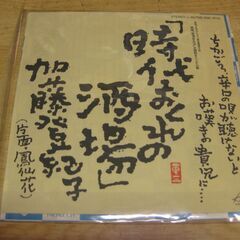 ちかごろ、辛口の唄が聴けないと
お嘆きの貴兄に…
「時代おくれの
酒場」
加藤登紀子
(片面・鳳仙花)